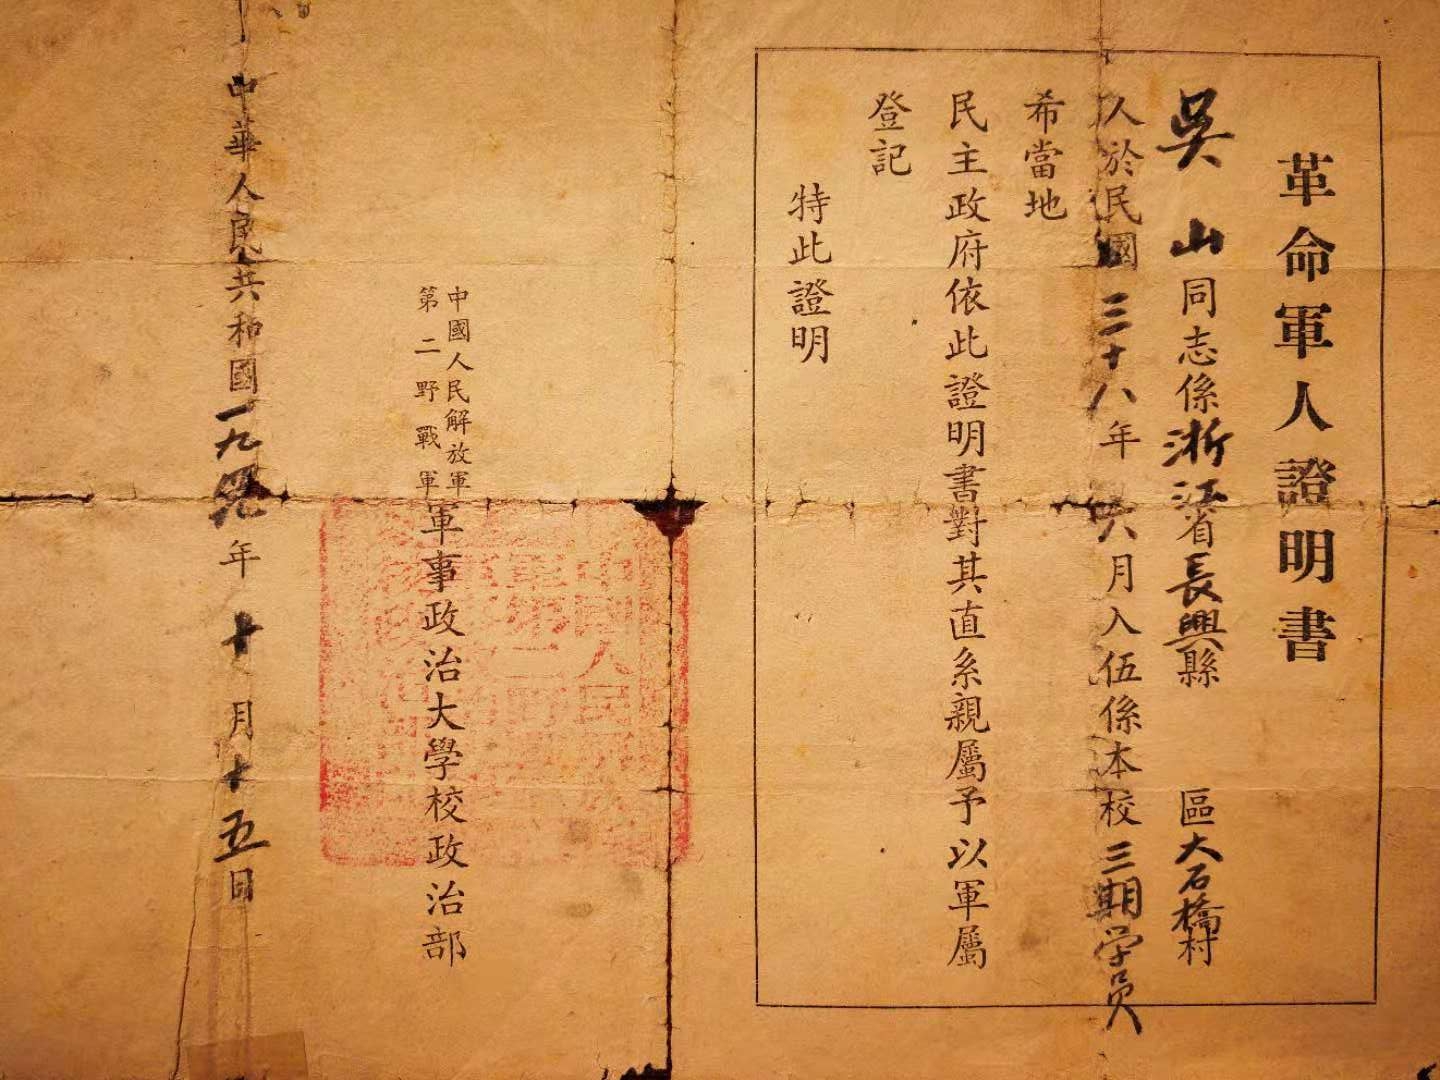 革命軍人證明書
吳山同志係浙江省長興縣 區大石橋村
人於民國三十八年六月入伍係本校三期学员
希當地
民主政府依此證明書對其直系親屬予以軍屬
登記
特此證明
中國人民解放軍
第二野戰軍
軍事政治大學校政治部
中華人民共和國一九四九年十月十五日